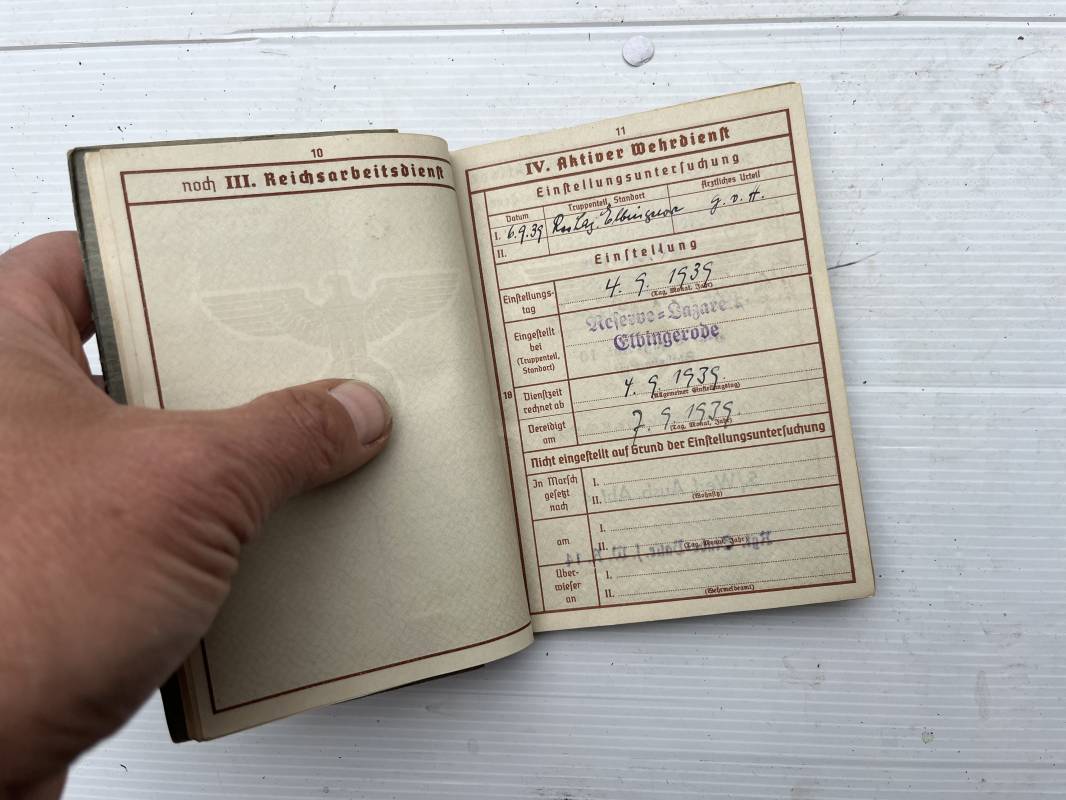 10
noch III. Reichsarbeitsdienst
11
IV. Aktiver Wehrdienst
Einstellungsuntersuchung
Datum Truppenteil, Standort Ärztliches Urteil
I. 6.9.39 Res. Laz. Elbingerode g. v. H.
II.
Einstellung
Einstellungs-
tag
4. 9. 1939
(Tag, Monat, Jahr)
Eingestellt
bei
(Truppenteil,
Standort)
Reserve-Lazarett
Elbingerode
18
Dienstzeit
rechnet ab
4. 9. 1939.
(Allgemeiner Einstellungstag)
Vereidigt
am
7. 9. 1939.
(Tag, Monat, Jahr)
Nicht eingestellt auf Grund der Einstellungsuntersuchung
In Marsch
gesetzt
nach
I.
II.
(Wohnsitz)
am
I.
II.
(Tag, Monat, Jahr)
Über-
wiesen
an
I.
II.
(Wehrmeldeamt)